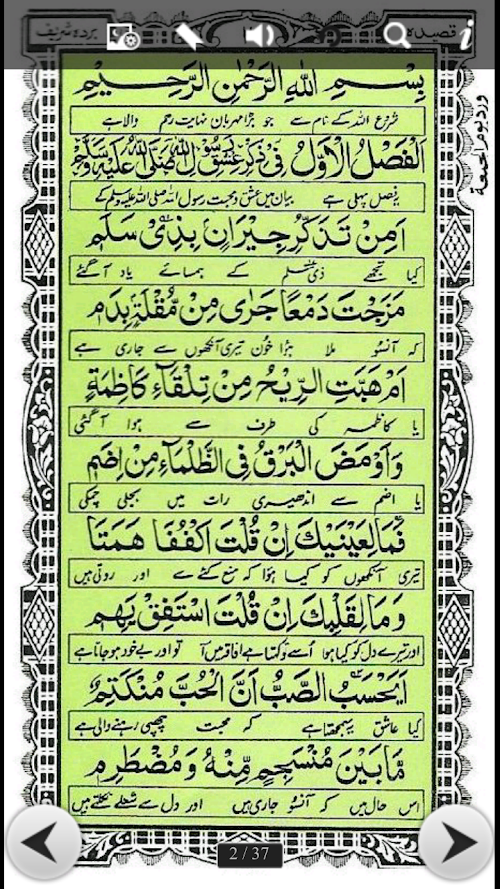 قصیدہ بردہ شریف
ورد یوم الجمعة
بِسْمِ اللهِ الرَّحْمٰنِ الرَّحِيْمِ
شروع اللہ کے نام سے جو بڑا مہربان نہایت رحم والا ہے
اَلْفَصْلُ الْاَوَّلُ فِيْ ذِكْرِ عِشْقِ رَسُوْلِ اللهِ صَلَّى اللهُ عَلَيْهِ وَسَلَّمَ
یہ فصل پہلی ہے بیان میں عشق و محبت رسول اللہ صلی اللہ علیہ وسلم کے
اَمِنْ تَذَكُّرِ جِيْرَانٍ بِذِيْ سَلَمِ
کیا تجھے ذی سلم کے ہمسائے یاد آ گئے
مَزَجْتَ دَمْعًا جَرٰى مِنْ مُّقْلَةٍ بِدَمِ
کہ آنسو ملا ہڑا خون تیری آنکھوں سے جاری ہے
اَمْ هَبَّتِ الرِّيْحُ مِنْ تِلْقَآءِ كَاظِمَةٍ
یا کاظمہ کی طرف سے ہوا آ گئی
وَاَوْمَضَ الْبَرْقُ فِي الظَّلْمَآءِ مِنْ اِضَمِ
یا اضم سے اندھیری رات میں بجلی چمکی
فَمَا لِعَيْنَيْكَ اِنْ قُلْتَ اكْفُفَا هَمَتَا
تیری آنکھوں کو کیا ہوا کہ منع کئے سے اور روتی ہیں
وَمَا لِقَلْبِكَ اِنْ قُلْتَ اسْتَفِقْ يَهِمِ
اور تیرے دل کو کیا ہوا اُسے تو کہتا ہے افاقہ میں آ تو اور بے خود ہو جاتا ہے
اَيَحْسَبُ الصَّبُّ اَنَّ الْحُبَّ مُنْكَتِمٌ
کیا عاشق یہ سمجھتا ہے کہ محبت چھپی رہنے والی ہے
مَّا بَيْنَ مُنْسَجِمٍ مِّنْهُ وَمُضْطَرِمِ
اس حال میں کہ آنسو جاری ہیں اور دل سے شعلے نکلتے ہیں
2 / 37